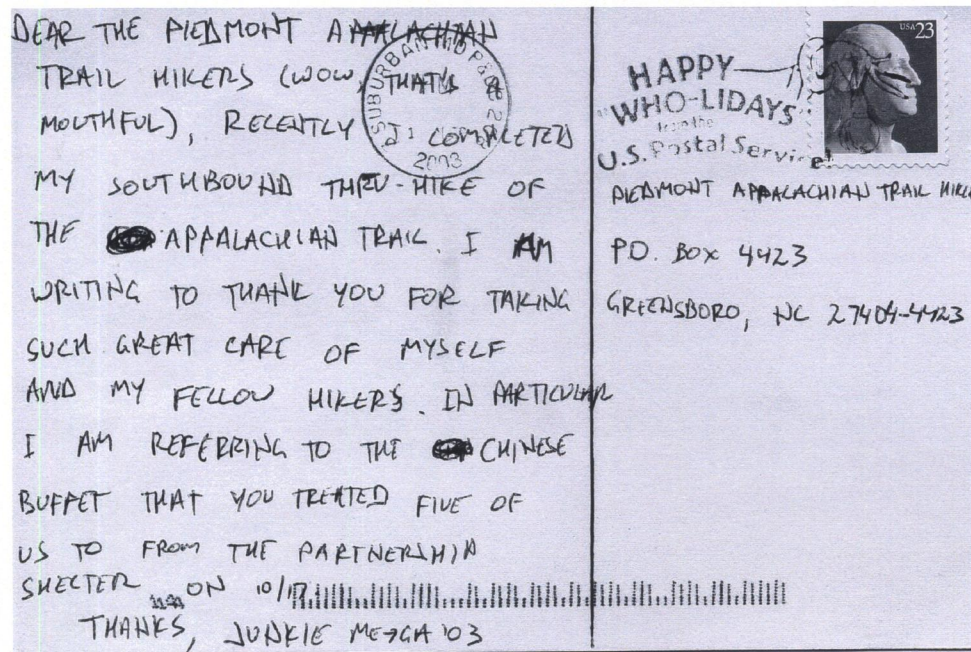 DEAR THE PIEDMONT APPALACHIAN
TRAIL HIKERS (WOW, THAT'S A
MOUTHFUL), RECENTLY I COMPLETED
MY SOUTHBOUND THRU-HIKE OF
THE APPALACHIAN TRAIL. I AM
WRITING TO THANK YOU FOR TAKING
SUCH GREAT CARE OF MYSELF
AND MY FELLOW HIKERS. IN PARTICULAR
I AM REFERRING TO THE CHINESE
BUFFET THAT YOU TREATED FIVE OF
US TO FROM THE PARTNERSHIP
SHELTER ON 10/17.
THANKS, JUNKIE ME→GA '03
SUBURBAN MD P&DC
2003
HAPPY
"WHO-LIDAYS"
from the
U.S. Postal Service!
USA 23
PIEDMONT APPALACHIAN TRAIL HIKE
P.O. BOX 4423
GREENSBORO, NC 27404-4423